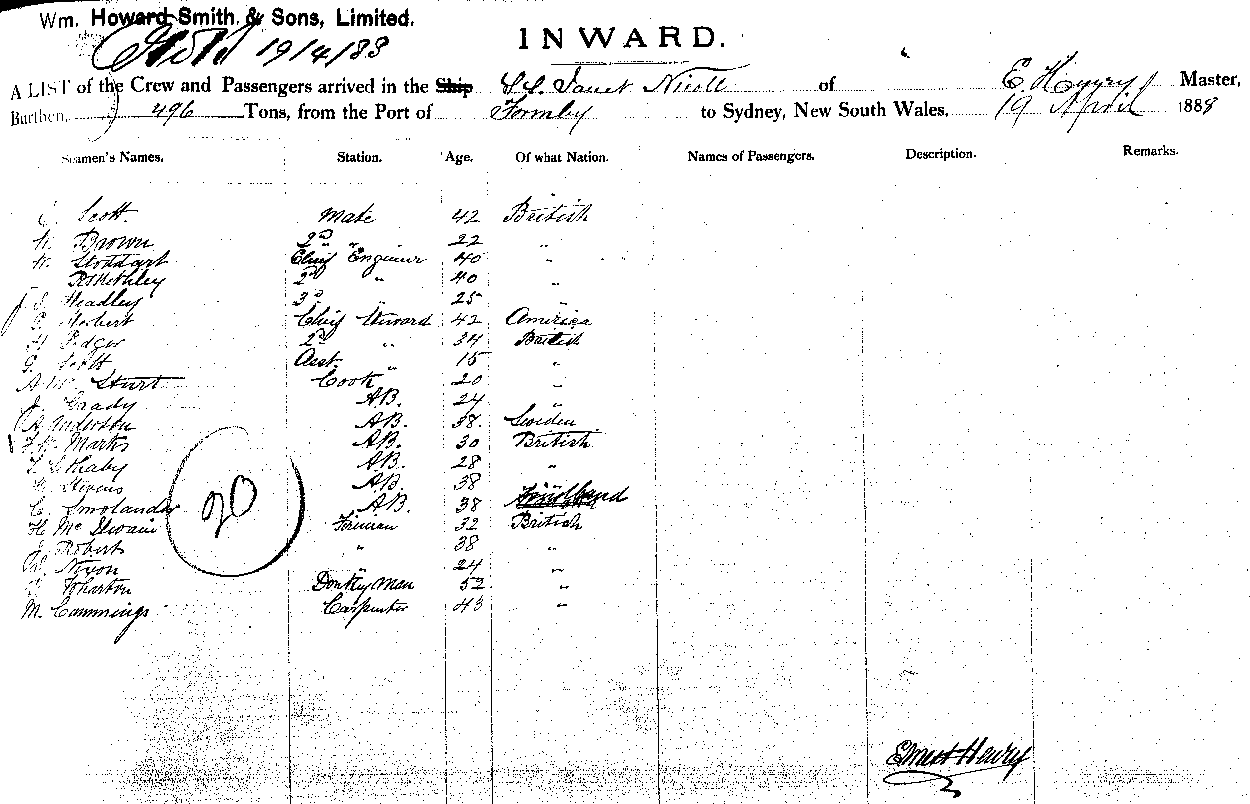 Wm. Howard Smith & Sons, Limited.
19/4/88
INWARD.
A LIST of the Crew and Passengers arrived in the Ship S.S. Janet Nicoll of E. Henry Master,
Burthen, 496 Tons, from the Port of Formby to Sydney, New South Wales, 19 April 1888
Seamen's Names. Station. Age. Of what Nation. Names of Passengers. Description. Remarks.
Scott. Mate 42 British
Brown 2nd " 22 "
Stoddart Chief Engineer 40 "
2nd " 40 "
Headley 3rd 25 "
Herbert Chief Steward 42 America
H Edgar 2nd " 34 British
G. Scott Asst. " 15 "
Sturt Cook 20 "
J. Grady AB. 24 "
A Anderson AB. 38. Sweden
Marks AB. 30 British
AB. 28 "
Stevens AB. 38
C. Smolander AB. 38
H Mc Ilwain Fireman 32 British
Robert " 38 "
Nixon " 24 "
Wharton Donkey Man 52 "
M. Cummings Carpenter 43 "
20
Ernest Henry